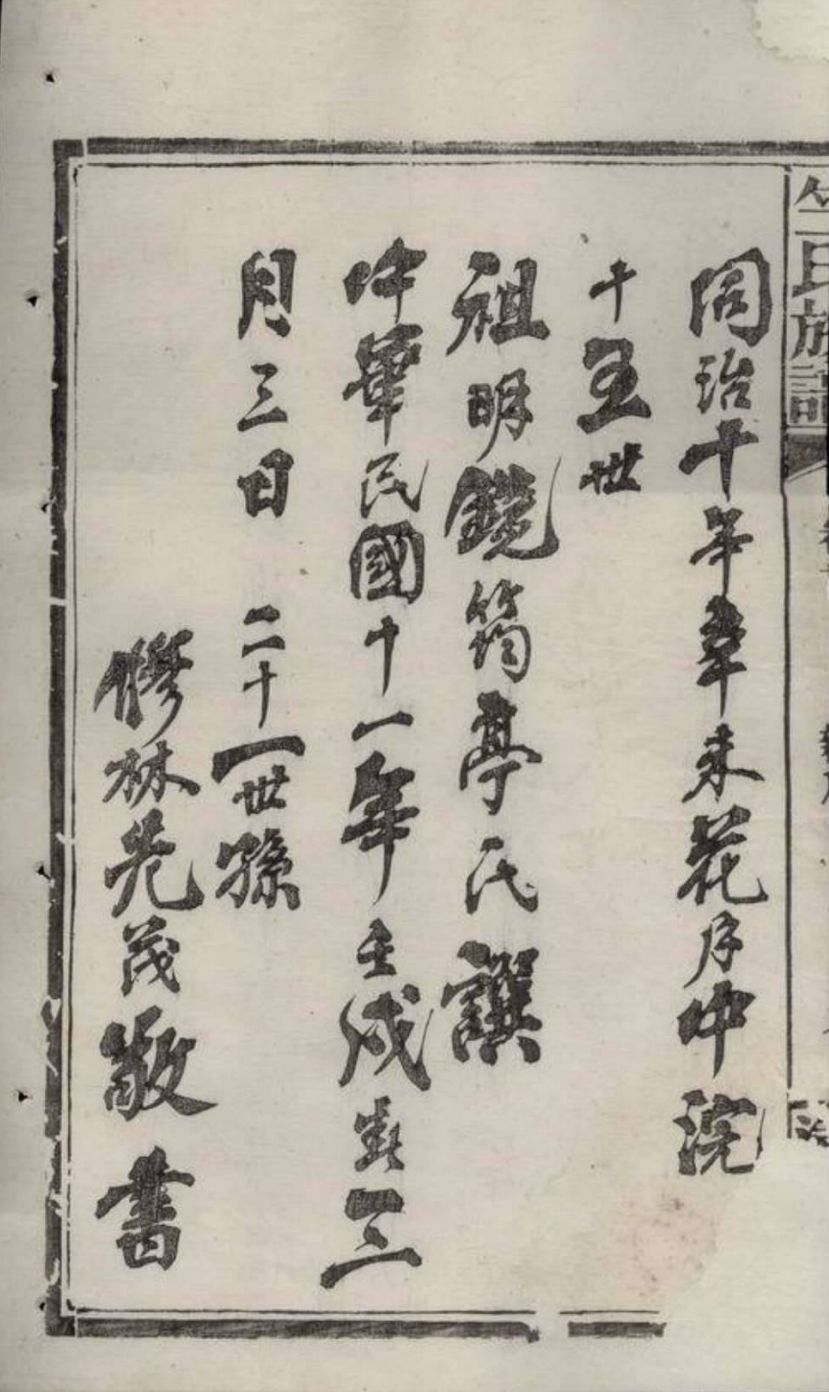 竺氏族譜
同治十年辛未花月中浣
十五世
祖明鏡筠亭氏譔
中華民國十一年壬戌歲三
月三日 二十一世孫
修林先茂敬書